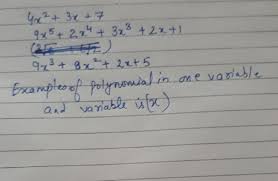 4x² + 3x + 7
9x⁵ + 2x⁴ + 3x³ + 2x + 1
9x³ + 8x² + 2x + 5
Examples of polynomial in one variable
and variable is (x)